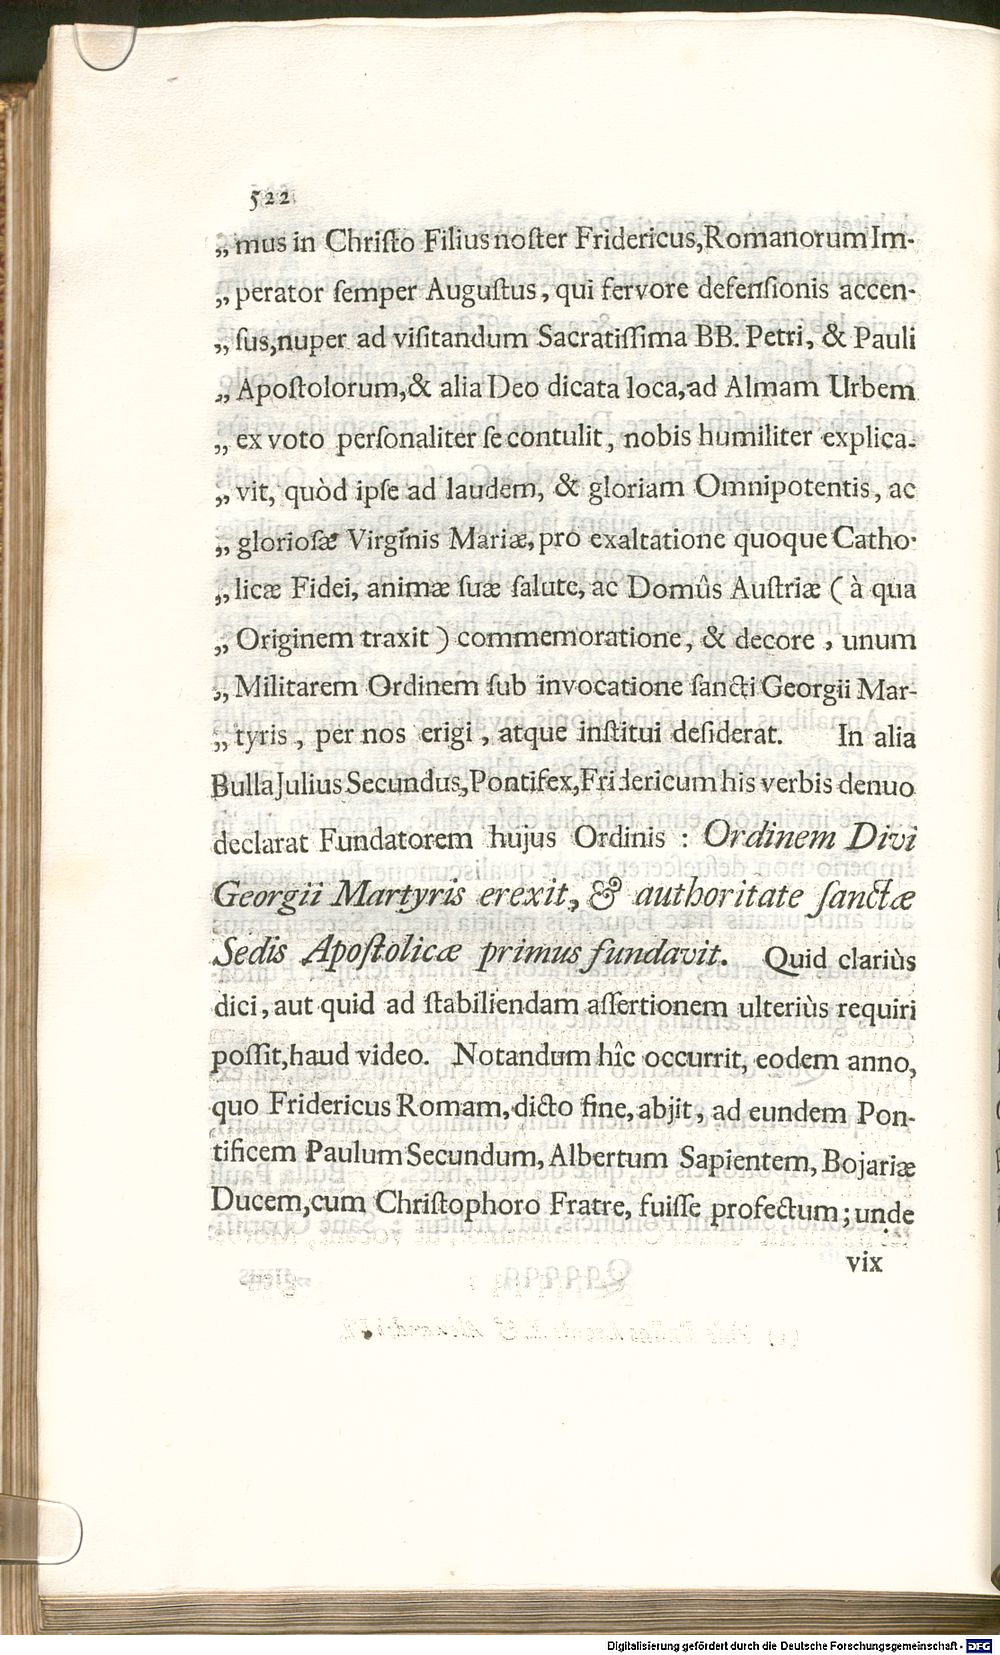 522
„ mus in Chriſto Filius noſter Fridericus, Romanorum Im-
„ perator ſemper Auguſtus, qui fervore defenſionis accen-
„ ſus, nuper ad viſitandum Sacratiſſima BB. Petri, & Pauli
„ Apoſtolorum, & alia Deo dicata loca, ad Almam Urbem
„ ex voto perſonaliter ſe contulit, nobis humiliter explica-
„ vit, quòd ipſe ad laudem, & gloriam Omnipotentis, ac
„ glorioſæ Virginis Mariæ, pro exaltatione quoque Catho-
„ licæ Fidei, animæ ſuæ ſalute, ac Domûs Auſtriæ ( à qua
„ Originem traxit ) commemoratione, & decore, unum
„ Militarem Ordinem ſub invocatione ſancti Georgii Mar-
„ tyris, per nos erigi, atque inſtitui deſiderat. In alia
Bulla Julius Secundus, Pontifex, Fridericum his verbis denuo
declarat Fundatorem hujus Ordinis : Ordinem Divi
Georgii Martyris erexit, & authoritate ſanctæ
Sedis Apoſtolicæ primus fundavit. Quid clariùs
dici, aut quid ad ſtabiliendam aſſertionem ulteriùs requiri
poſſit, haud video. Notandum hîc occurrit, eodem anno,
quo Fridericus Romam, dicto fine, abjit, ad eundem Pon-
tificem Paulum Secundum, Albertum Sapientem, Bojariæ
Ducem, cum Chriſtophoro Fratre, fuiſſe profectum; unde
vix
Digitalisierung gefördert durch die Deutsche Forschungsgemeinschaft - DFG